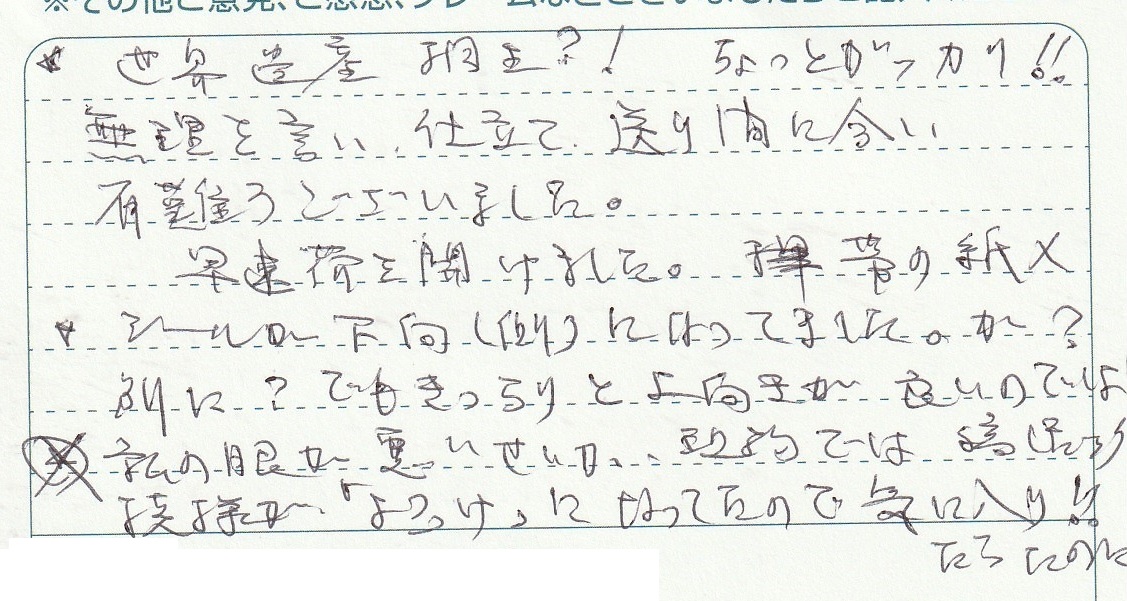 ※その他ご意見、ご感想、クレームなどございましたらご記入
* 世界遺産 ?! ちょっとがッカリ!!
無理を言い、仕立て、送り間に合い
有難うございました。
早速荷を開けました。 帯の紙
* シールが下向(側)になってましたが?
別に? でもきっちりと上向きが良いのでは
私の眼が悪いせいか… では
模様が「よろけ」になってたので気に入り!!